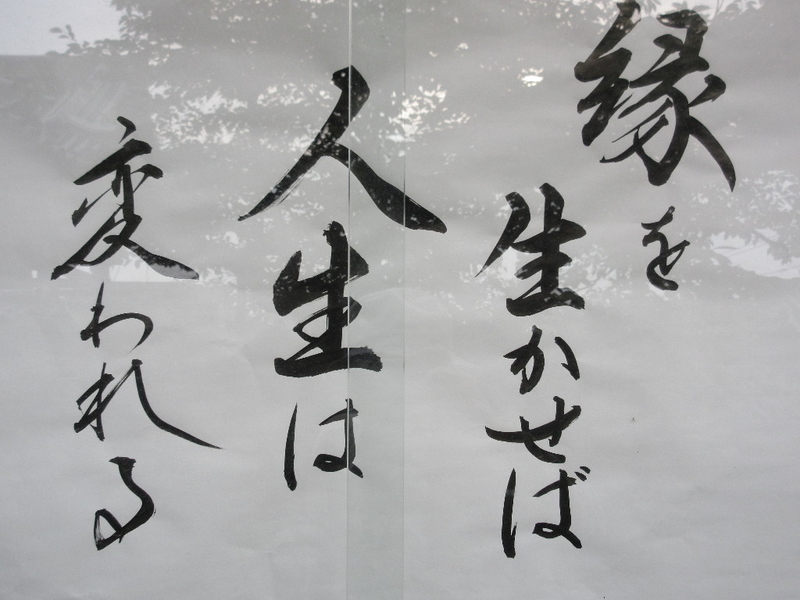 縁を
生かせば
人生は
変われる